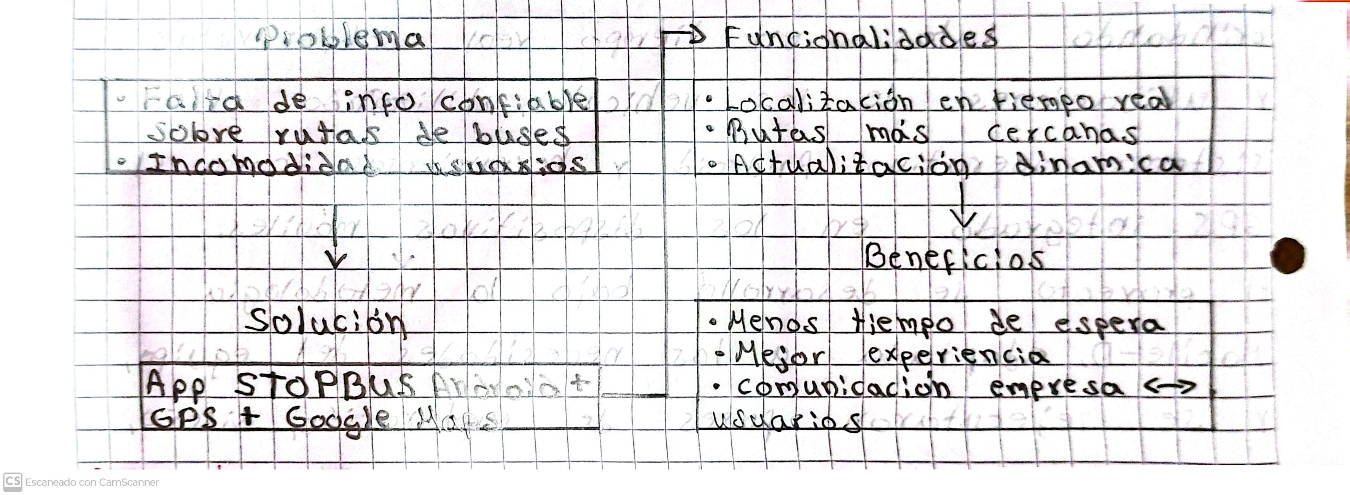 Problema
· Falta de info confiable
sobre rutas de buses
· Incomodidad usuarios
Solución
App STOPBUS Android +
GPS + Google Maps
Funcionalidades
· Localización en tiempo real
· Rutas más cercanas
· Actualización dinamica
Beneficios
· Menos tiempo de espera
· Mejor experiencia
· comunicación empresa <->
usuarios
CS Escaneado con CamScanner